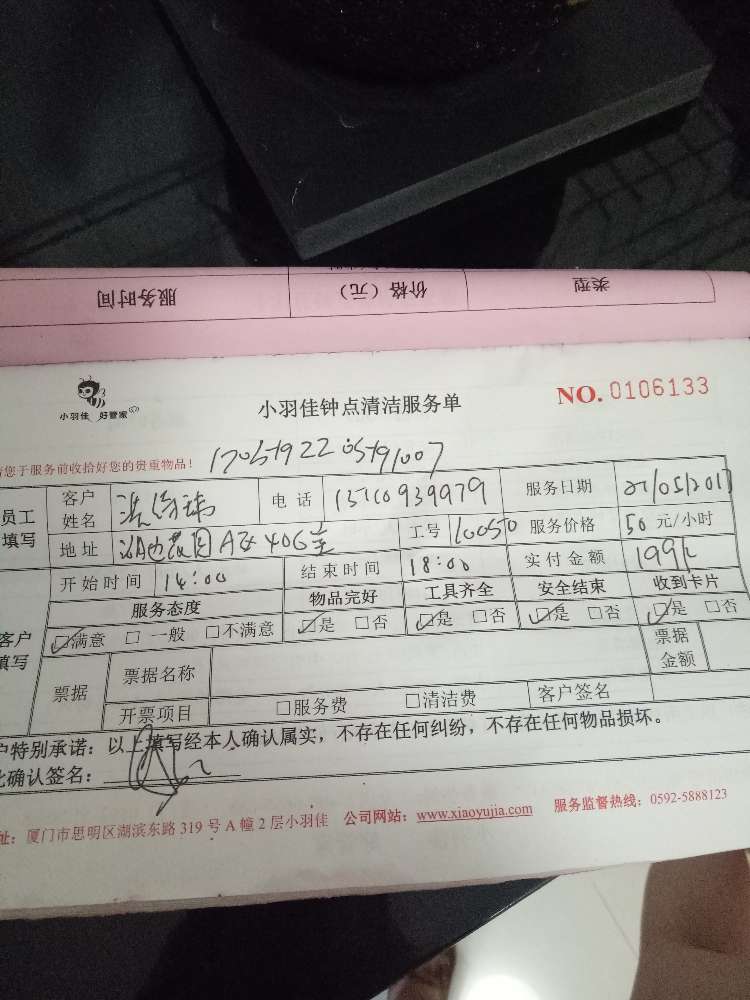 服务时间 价格（元） 类型
小羽佳 好管家
小羽佳钟点清洁服务单
NO. 0106133
您于服务前收拾好您的贵重物品！
员工填写
客户姓名
电话 13710939979
服务日期
地址
工号 100550
服务价格 50 元/小时
开始时间 14:00
结束时间 18:00
实付金额
客户填写
服务态度 物品完好 工具齐全 安全结束 收到卡片
☑满意 □一般 □不满意 ☑是 □否 ☑是 □否 ☑是 □否 ☑是 □否
票据
票据名称
票据金额
开票项目 □服务费 □清洁费 客户签名
户特别承诺：以上填写经本人确认属实，不存在任何纠纷，不存在任何物品损坏。
此确认签名：
址：厦门市思明区湖滨东路 319 号 A 幢 2 层小羽佳 公司网站：www.xiaoyujia.com 服务监督热线：0592-5888123